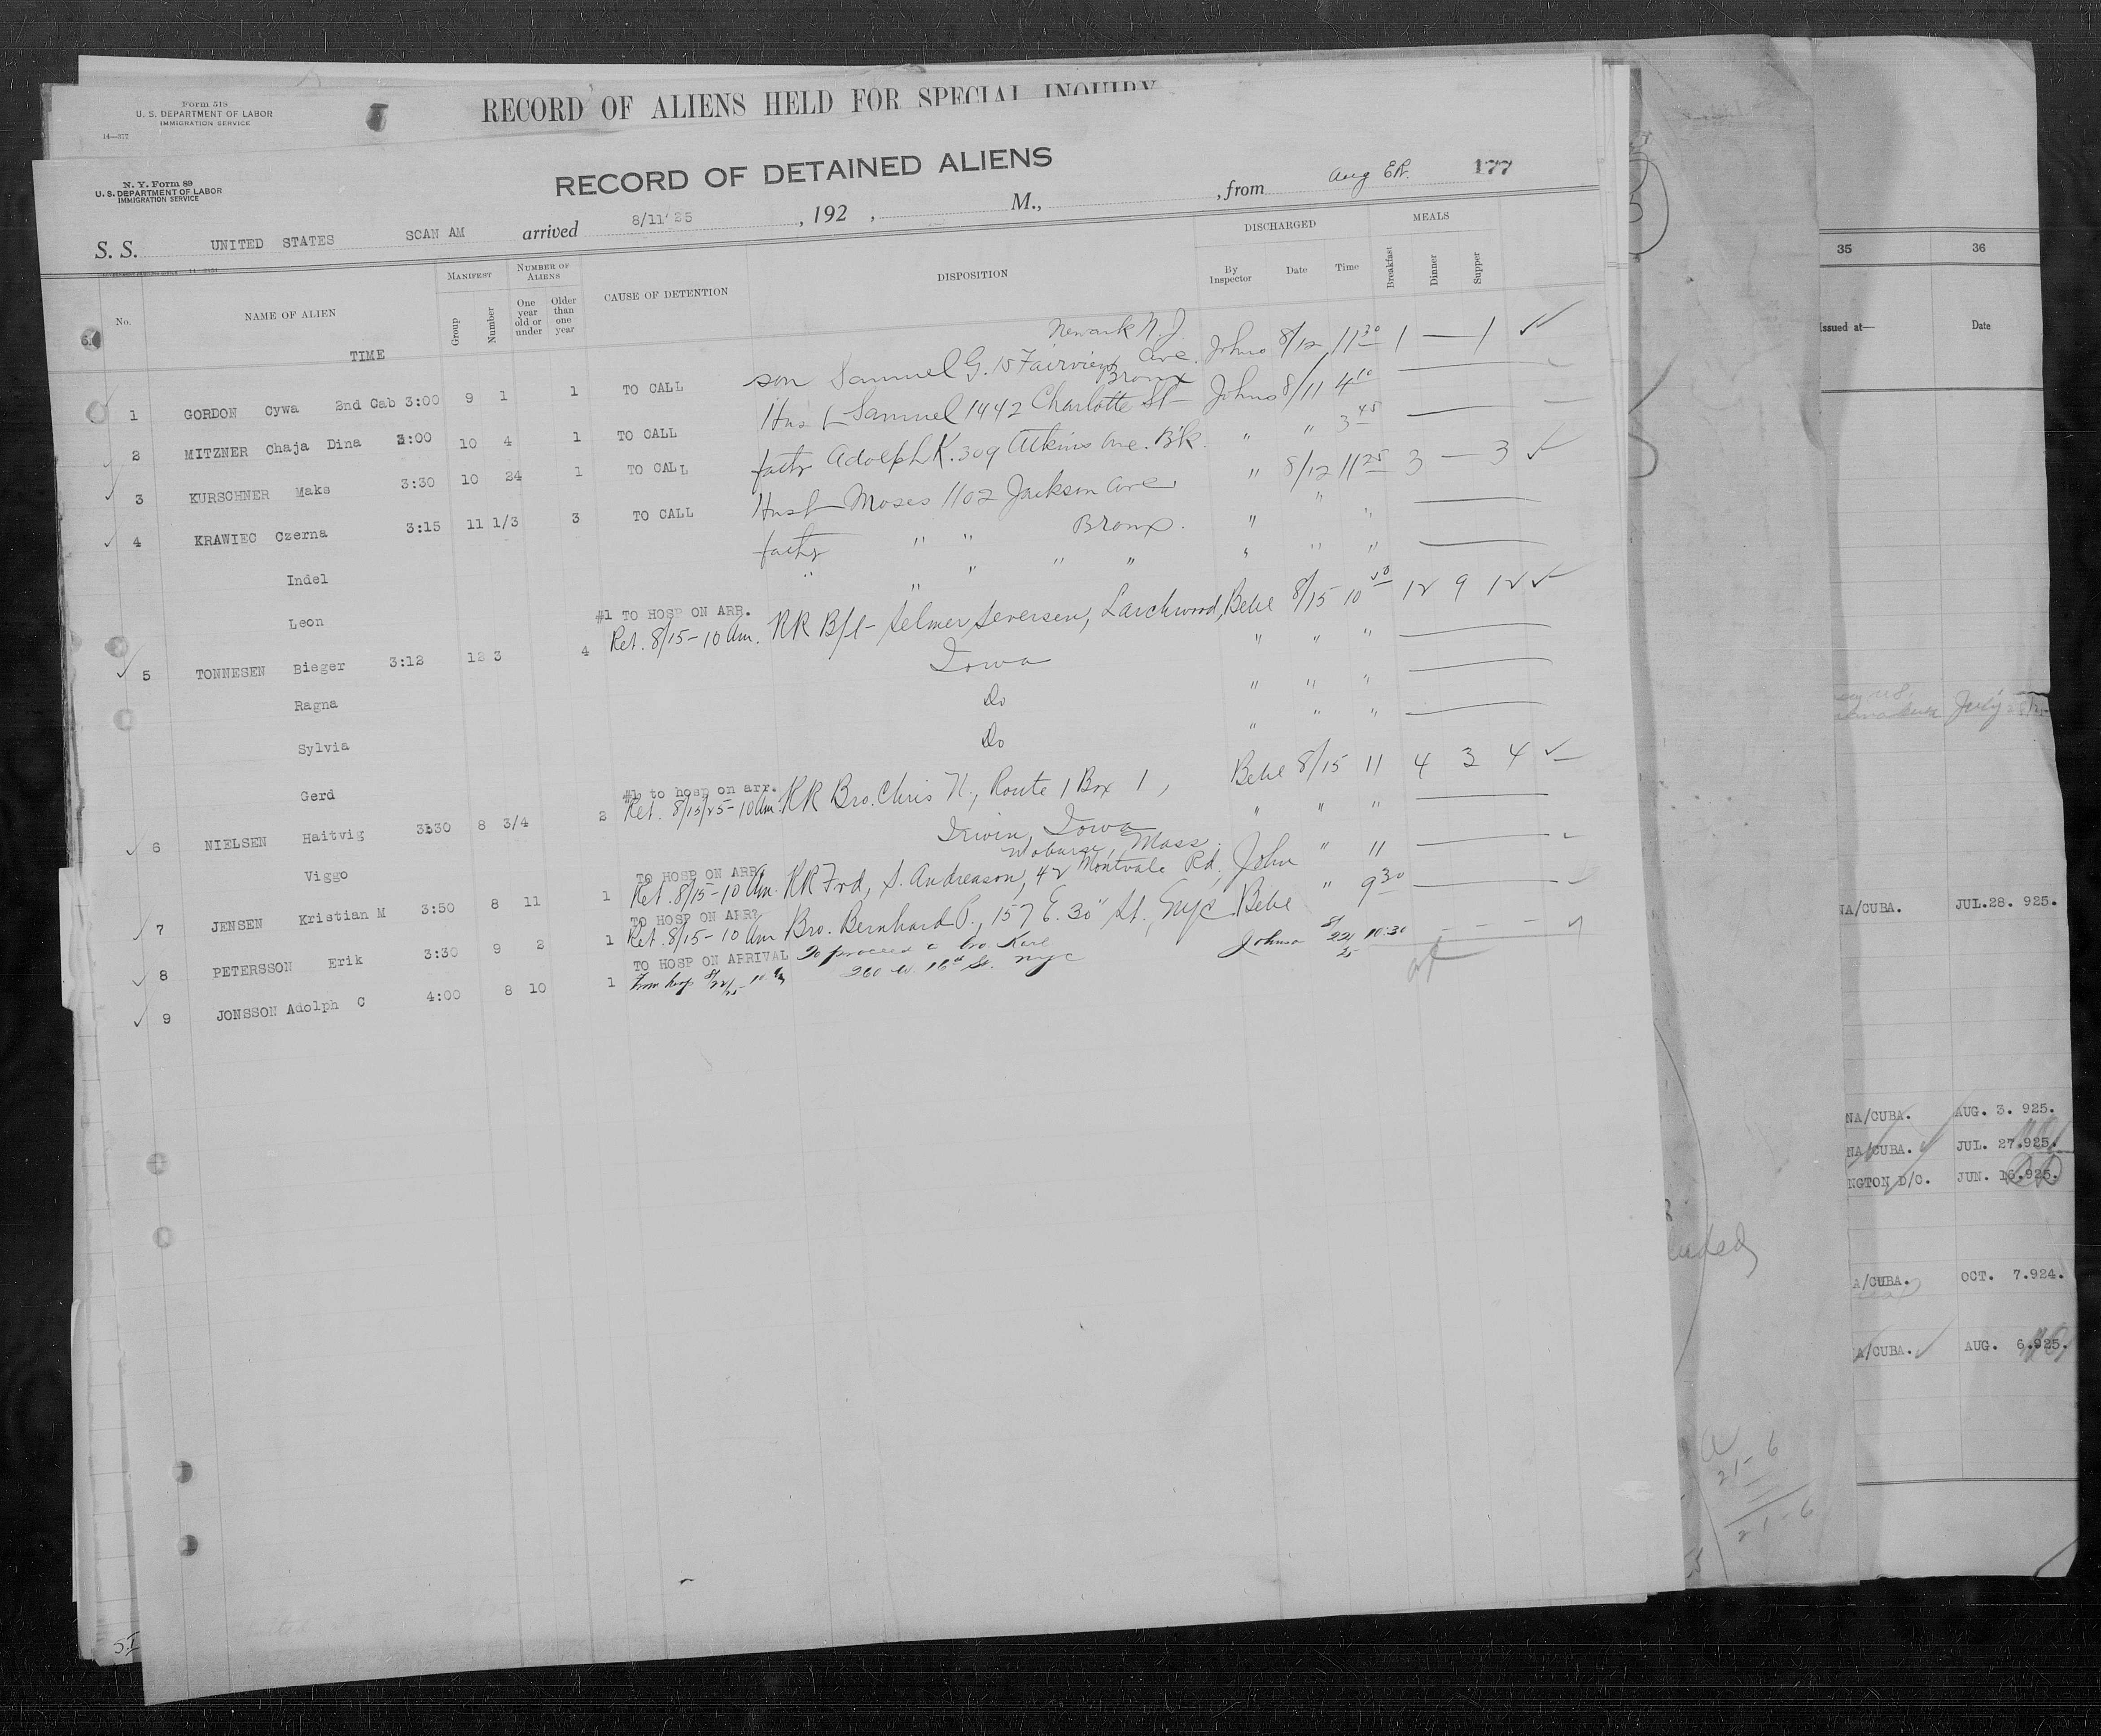 Form 518
U. S. DEPARTMENT OF LABOR
IMMIGRATION SERVICE
14—377
RECORD OF ALIENS HELD FOR SPECIAL INQUIRY
N. Y. Form 89
U. S. DEPARTMENT OF LABOR
IMMIGRATION SERVICE
RECORD OF DETAINED ALIENS
177
S. S. UNITED STATES SCAN AM arrived 8/11/25, 192 , M., , from Aug
No. NAME OF ALIEN MANIFEST Group Number NUMBER OF ALIENS One year old or under Older than one year CAUSE OF DETENTION DISPOSITION DISCHARGED By Inspector Date Time MEALS Breakfast Dinner Supper
TIME
Newark N.J.
1 GORDON Cywa 2nd Cab 3:00 9 1 1 TO CALL son Samuel G. 15 Fairview Ave. Johns 8/12 11 30 1 — 1
Bronx
2 MITZNER Chaja Dina 3:00 10 4 1 TO CALL Husb Samuel 1442 Charlotte St Johns 8/11 4 10
3 KURSCHNER Maks 3:30 10 24 1 TO CALL fathr Adolph K. 309 Atkins Ave. Bk. " " 3 45
4 KRAWIEC Czerna 3:15 11 1/3 3 TO CALL Husb Moses 1102 Jackson Ave " 8/12 11 25 3 — 3
Indel fathr " " Bronx. " " "
Leon " " " " " " " "
#1 TO HOSP ON ARR.
5 TONNESEN Bieger 3:12 12 3 4 Ret. 8/15-10 Am. RR B/l- Selmer Seversen, Larchwood, Bebe 8/15 10 12 9 12
Ragna Iowa " " "
Sylvia Do " " "
Gerd Do " " "
#1 to hosp on arr.
6 NIELSEN Haitvig 3:30 8 3/4 2 Ret. 8/15/25-10 Am. RR Bro. Chris N., Route 1 Box 1, Bebe 8/15 11 4 3 4
Viggo Irwin, Iowa " " "
Mass.
TO HOSP ON ARR
7 JENSEN Kristian M 3:50 8 11 1 Ret. 8/15-10 Am. RR Frd, S. Andreason, 42 Montvale Rd, John " 11
TO HOSP ON ARR
8 PETERSSON Erik 3:30 9 2 1 Ret. 8/15-10 Am Bro. Bernhard P., 157 E. 30" St., NYC Bebe " 9 30
TO HOSP ON ARRIVAL To proceed c bro. Karl Johnson 8/22/25 10:30
9 JONSSON Adolph C 4:00 8 10 1 from hosp 8/22/25 260 W. 16th St. NYC
35 36
Issued at— Date
July
NA/CUBA. JUL.28. 925.
NA/CUBA. AUG. 3. 925.
NA/CUBA. JUL. 27.925.
NGTON D/C. JUN. 16.925.
A/CUBA. OCT. 7.924.
A/CUBA. AUG. 6.925.
21-6
21-6